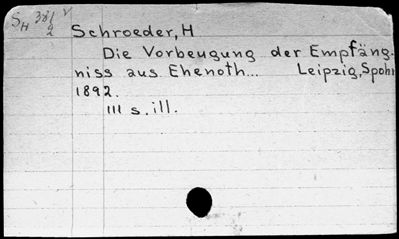 Schroeder, H
Die Vorbeugung der Empfäng-
niss aus Ehenoth... Leipzig, Spohr
1892.
111 s. ill.